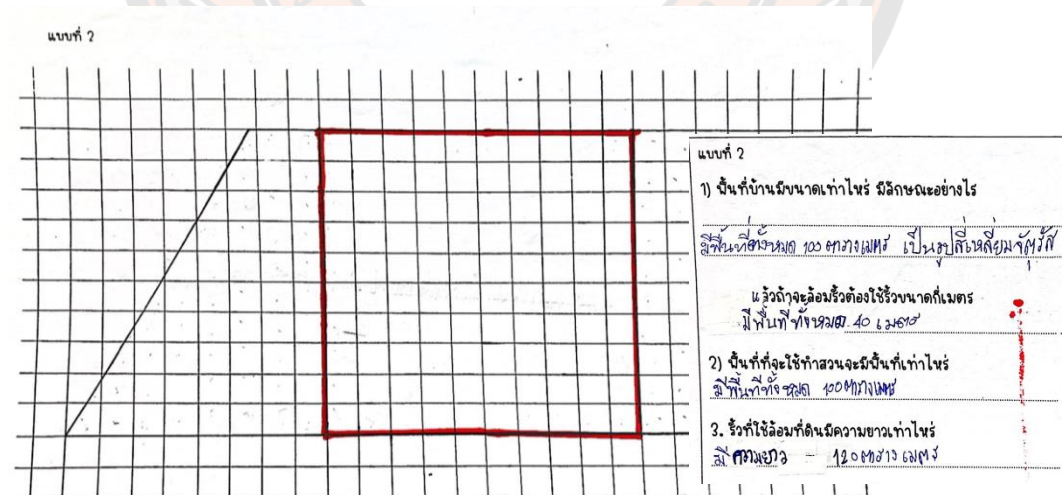 แบบที่ 2
แบบที่ 2
1) พื้นที่บ้านมีขนาดเท่าไหร่ มีลักษณะอย่างไร
มีพื้นที่ทั้งหมด 100 ตารางเมตร เป็นรูปสี่เหลี่ยมจัตุรัส
แล้วถ้าจะล้อมรั้วต้องใช้รั้วขนาดกี่เมตร
มีพื้นที่ทั้งหมด 40 เมตร
2) พื้นที่ที่จะใช้ทำสวนจะมีพื้นที่เท่าไหร่
มีพื้นที่ทั้งหมด 100 ตารางเมตร
3. รั้วที่ใช้ล้อมที่ดินมีความยาวเท่าไหร่
มีความยาว 120 ตารางเมตร